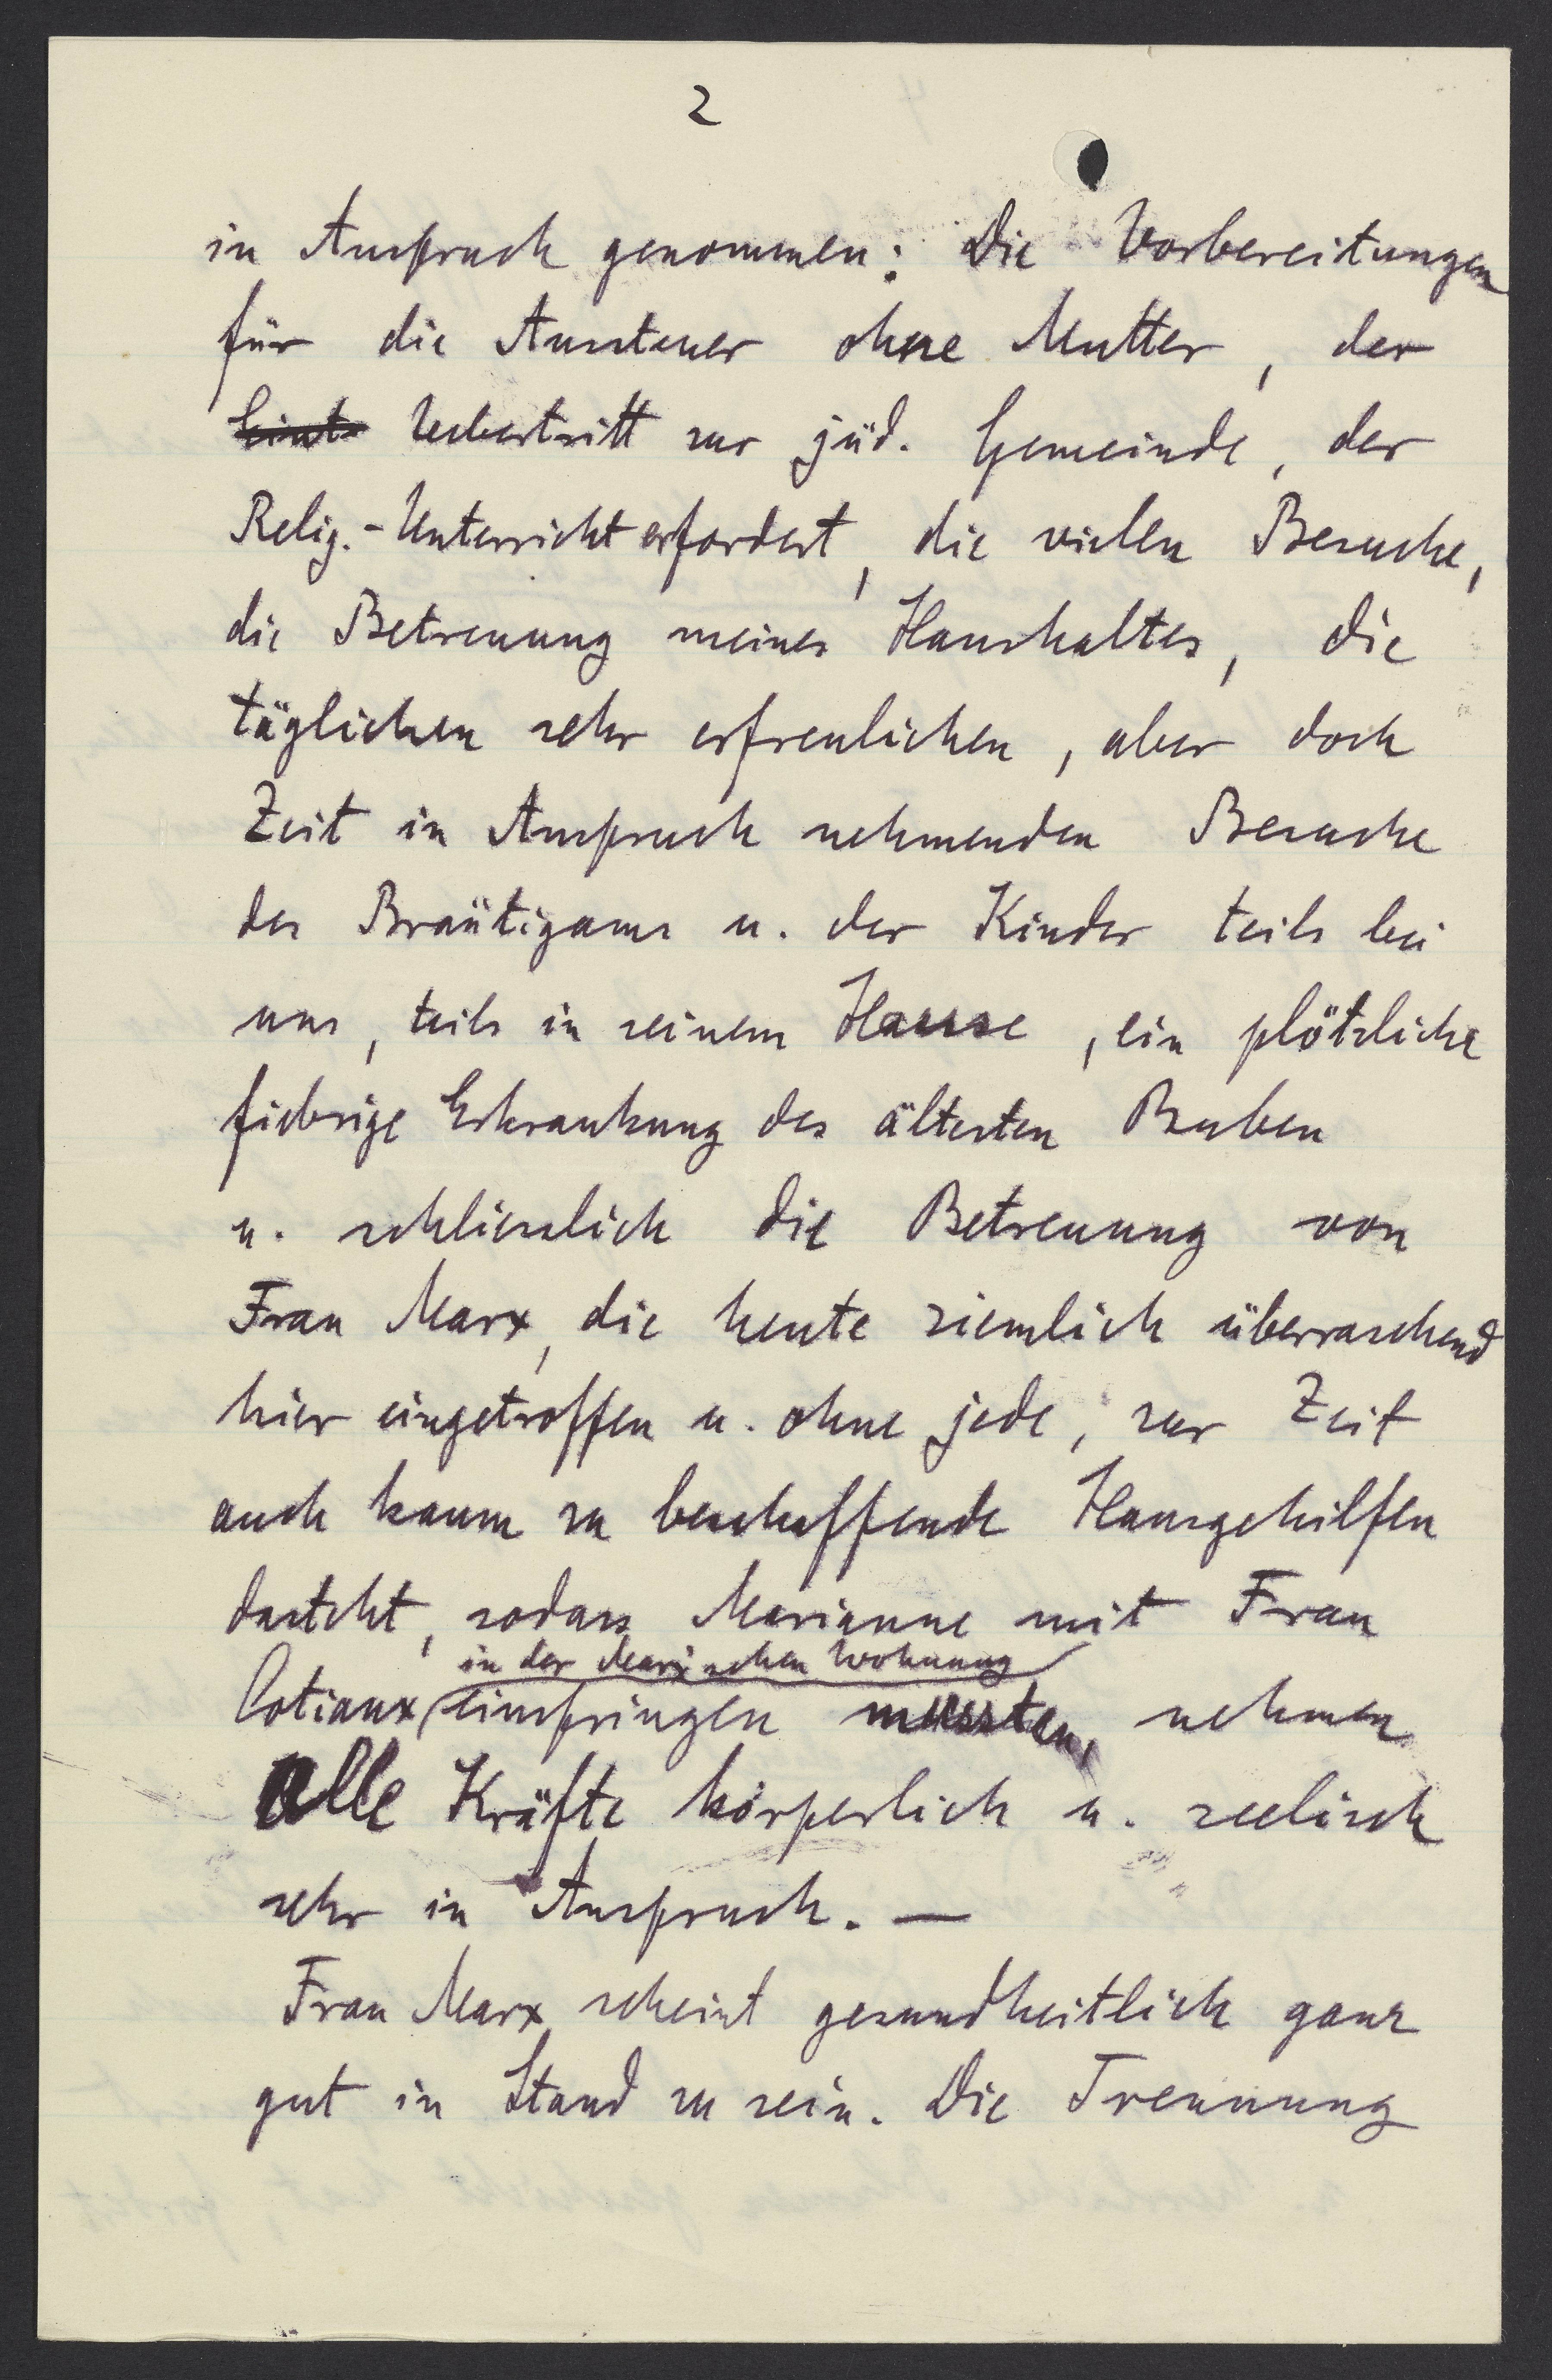 2
in Anspruch genommen: Die Vorbereitungen
für die Aussteuer ohne Mutter, der
Uebertritt zur jüd. Gemeinde, der
Relig.-Unterricht erfordert, die vielen Besuche,
die Betreuung meines Haushaltes, die
täglichen sehr erfreulichen, aber doch
Zeit in Anspruch nehmenden Besuche
des Bräutigams u. der Kinder teils bei
uns, teils in seinem Hause, ein plötzliche
fiebrige Erkrankung des ältesten Buben
u. schliesslich die Betreuung von
Frau Marx, die heute ziemlich überraschend
hier eingetroffen u. ohne jede, zur Zeit
auch kaum zu beschaffende Hausgehilfen
dasteht, sodass Marianne mit Frau
in der Marxschen Wohnung
Cotiaux einspringen mussten, nehmen
alle Kräfte körperlich u. seelisch
sehr in Anspruch. —
Frau Marx scheint gesundheitlich ganz
gut in Stand zu sein. Die Trennung